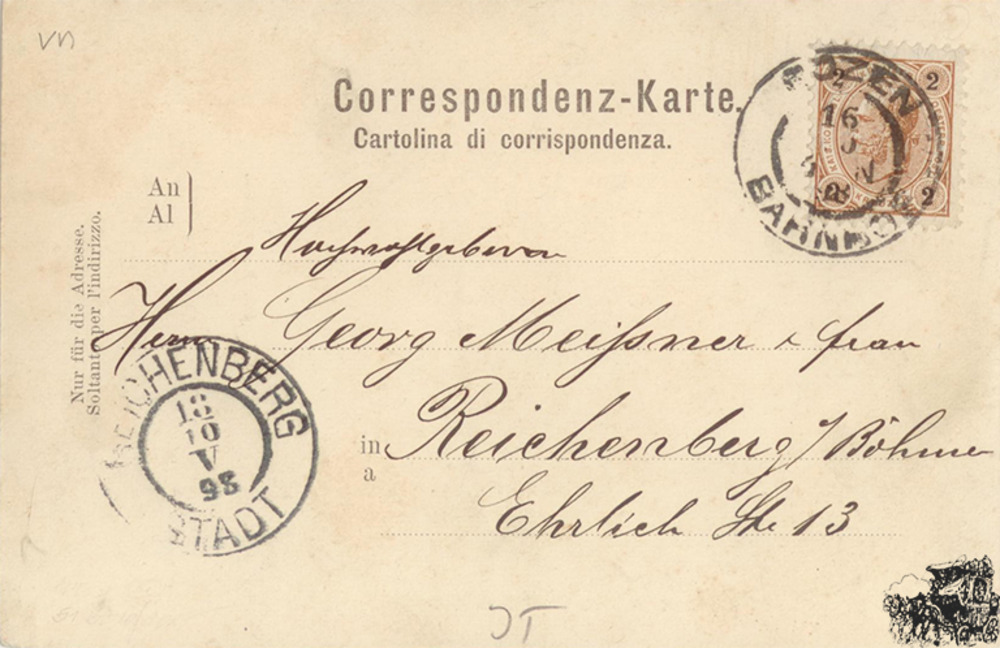 Correspondenz-Karte.
Cartolina di corrispondenza.
BOZEN
16
BAHNHOF
2 2
2 2
An
Al
Nur für die Adresse.
Soltanto per l'indirizzo.
Hochwohlgeboren
Herrn Georg Meißner & frau
in
a
Reichenberg / Böhmen
Ehrlich Str 13
REICHENBERG
18
10
V
98
STADT